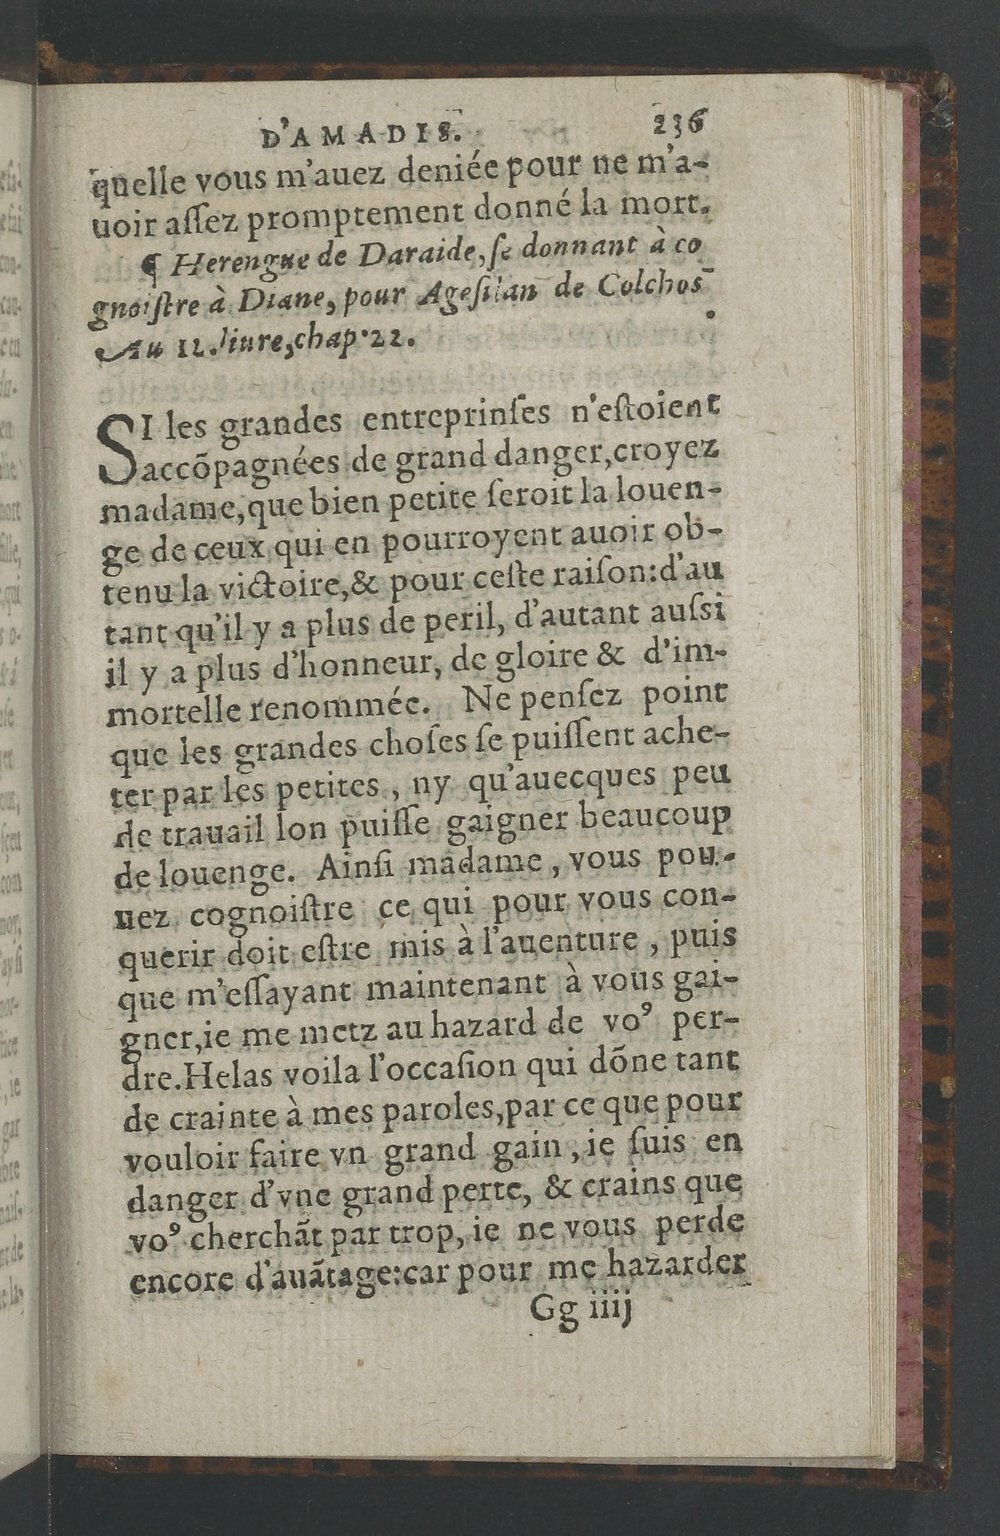 D'AMADIS. 236
quelle vous m'auez deniée pour ne m'a-
uoir aſſez promptement donné la mort.
¶ Herengue de Daraide, ſe donnant à co
gnoiſtre à Diane, pour Ageſilan de Colchos
Au 11. liure, chap. 22.
SI les grandes entreprinſes n'eſtoient
accõpagnées de grand danger, croyez
madame, que bien petite ſeroit la louen-
ge de ceux qui en pourroyent auoir ob-
tenu la victoire, & pour ceſte raiſon: d'au
tant qu'il y a plus de peril, d'autant auſsi
il y a plus d'honneur, de gloire & d'im-
mortelle renommée. Ne penſez point
que les grandes choſes ſe puiſſent ache-
ter par les petites, ny qu'auecques peu
de trauail lon puiſſe gaigner beaucoup
de louenge. Ainſi madame, vous pou-
uez cognoiſtre ce qui pour vous con-
querir doit eſtre mis à l'auenture, puis
que m'eſſayant maintenant à vous gai-
gner, ie me metz au hazard de voꝰ per-
dre. Helas voila l'occaſion qui dõne tant
de crainte à mes paroles, par ce que pour
vouloir faire vn grand gain, ie ſuis en
danger d'vne grand perte, & crains que
voꝰ cherchãt par trop, ie ne vous perde
encore d'auãtage: car pour me hazarder
Gg iiij